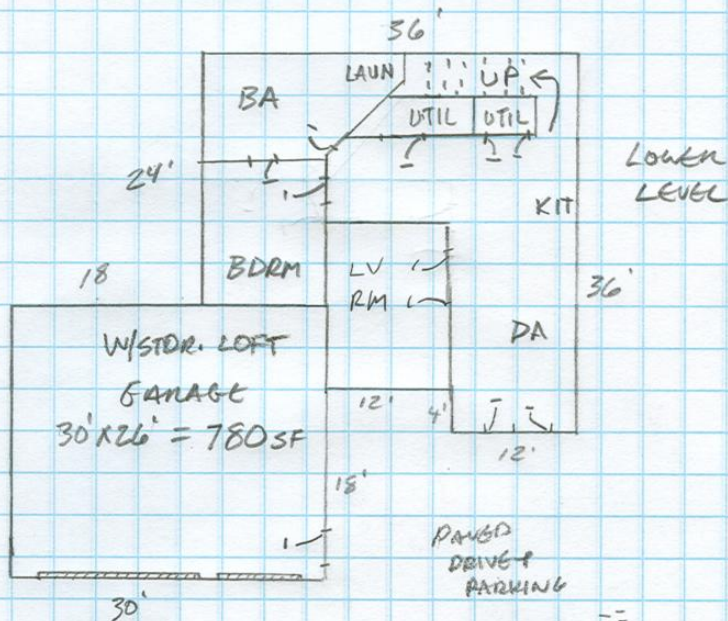 36'
LAUN UP
BA
UTIL UTIL
LOWER
LEVEL
24'
KIT
BDRM
LV
RM
18
36'
W/STOR. LOFT
GARAGE
30' X 26' = 780 SF
DA
12'
4'
12'
18'
PAVED
DRIVE &
PARKING
30'